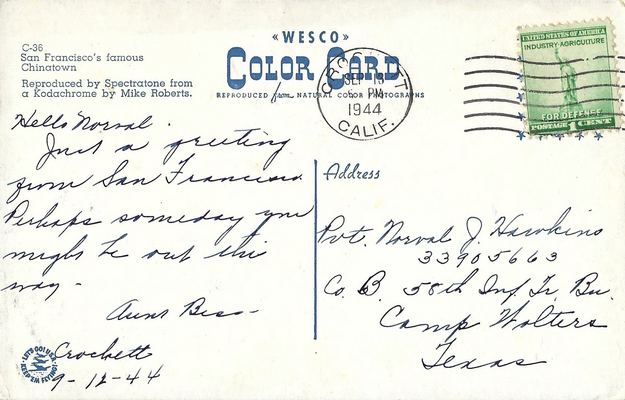 C-36
San Francisco's famous
Chinatown
Reproduced by Spectratone from
a Kodachrome by Mike Roberts.
«WESCO»
COLOR CARD
REPRODUCED from NATURAL COLOR PHOTOGRAPHS
CROCKETT
SEP 13
5 PM
1944
CALIF.
UNITED STATES OF AMERICA
INDUSTRY-AGRICULTURE
FOR DEFENSE
POSTAGE 1 CENT
Hello Norval.
Just a greeting
from San Francisco.
Perhaps someday you
might be out this
way-
Aunt Bess-
Crockett
9-12-44
LET'S GO! U.S.A.
KEEP 'EM FLYING!
Address
Pvt. Norval J. Hawkins
33905663
Co. B. 58th Inf. Tr. Bn.
Camp Wolters
Texas